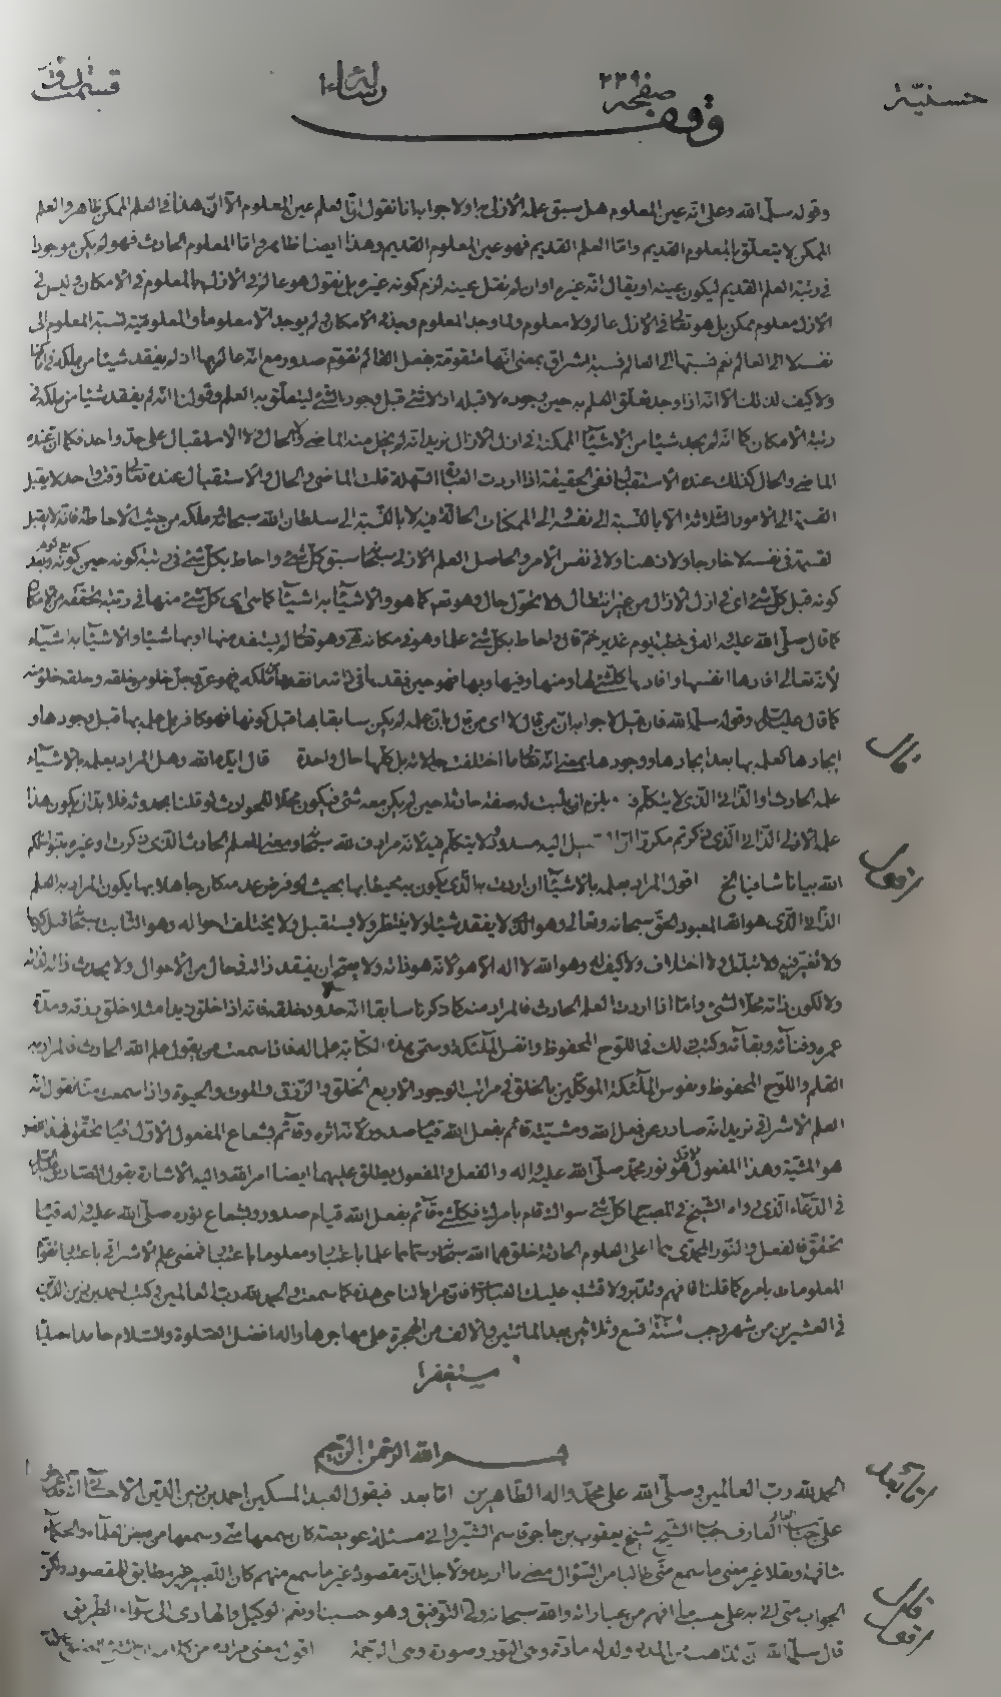 حسنيّة
صفحه ٢٢٩
رسالة
قسمت
وقف
وقوله سلّمه الله وعلى انّه عين المعلوم هل سبق علمه الأزلي بها ولا جوابه انا نقول انّ العلم عين المعلوم الّا انّ هذا في العلم الممكن ظاهر والعلم
الممكن لا يتعلّق بالمعلوم القديم وامّا العلم القديم فهو عين المعلوم القديم وهذا ايضا ظاهر وامّا المعلوم الحادث فهو لم يكن موجودا
في رتبة العلم القديم ليكون عينه او يقال انّه غيره وان لم نقل عينه لزم كونه غيره بل نقول هو عالم في الأزل بالمعلوم في الامكان وليس في
الأزل معلوم ممكن بل هو تعالى في الأزل عالم ولا معلوم ولما وجد المعلوم وجد في الامكان ولم يوجد الّا معلوما والمعلوميّة نسبة المعلوم الى
نفسه لا الى العالم نعم نسبتها الى العالم نسبة اشراق بمعنى انّها متقوّمة بفعل العالم تقوّم صدور مع انّه عالم بها اذ لم يفقد شيئا من ملكه في
ولا كيف لذلك الّا انّه اذا وجد تعلّق العلم به حين وجوده لا قبله اذ لا شئ قبل وجود الشئ ليتعلّق به العلم وقولنا انّه لم يفقد شيئا من ملكه في
رتبة الامكان كما انّه لم يجد شيئا من الأشياء الممكنة في ازل الآزال نريد انّه لم يخل منه الماضي ولا الحال ولا الاستقبال على حدّ واحد فكما ان عنده
الماضي والحال كذلك عنده الاستقبال ففي الحقيقة اذا اردت العبارة السهلة قلت الماضي والحال والاستقبال عنده تعالى وقت واحد لا يقبل
القسمة الى الامور الثلاثة الّا بالنسبة الى نفسه والى الممكنات الحالّة فيه لا بالنسبة الى سلطان الله سبحانه وملكه من حيث الاحاطة فانّه لا يقبل
لقسمة في نفسه لا خارجا ولا ذهنا ولا في نفس الأمر والحاصل العلم الأزلي سبحانه سبق كلّ شئ واحاط بكلّ شئ في رتبة كونه حين كونه وبعد
كونه قبل كلّ شئ اي في ازل الآزال من غير انتقال ولا تحوّل حال وهو تعالى كما هو والأشياء به اشياء كما هي اي كلّ شئ منها في رتبة تحقّقه من الامكان
كما قال صلّى الله عليه واله في خطبة يوم غدير خم قال واحاط بكلّ شئ علما وهو في مكانه وهو تعالى لم يستفد منها او بها شيئا والأشياء به اشياء
لأنّه تعالى افادها انفسها وافاد بها كلّ شئ لها ومنها وفيها وبها فهو حين فقدها في ذاته ما فقدها في ملكه فهو عزّ وجلّ خلو من خلقه وخلقه خلو منه
كما قال عليه السّلام وقوله سلّمه الله فان قيل لا جوابه انّ من قال لا اي من قال بانّ علمه لم يكن سابقا بها قبل كونها فهو كافر بل علمه بها قبل وجودها و
ايجادها كعلمه بها بعد ايجادها ووجودها بمعنى انّه تعالى ما اختلفت حاله بل كلّها حال واحدة قال ايّده الله وهل المراد بعلمه بالأشياء
علمه الحادث او الذاتي الذي لا يتكلّم فيه يلزم ان يثبت له صفة حادثة حين لم يكن معه شئ فيكون محلّا للحوادث لو قلنا بحدوثه فلا بدّ ان يكون هذا
علمه الازلي الذاتي الذي ذكرتم مكررا انّ السبيل اليه مسدود ولا يتكلّم فيه لانّه مرادف لله سبحانه ومعنى العلم الحادث الذي ذكرت او غيره بيّنوا لكم
الله بيانا شافيا الخ اقول المراد بعلمه بالأشياء ان اردت به الذي يكون به محيطا بها بحيث لو فرض عدمه كان جاهلا بها يكون المراد به العلم
الذاتي الذي هو الله المعبود الحقّ سبحانه وتعالى وهو الله لا يفقد شيئا ولا ينتظر ولا يستقبل ولا يختلف احواله وهو الثابت سبحانه قبل كونها
ولا تغيّر فيه ولا تبدّل ولا اختلاف ولا كيف له وهو الله لا اله الّا هو لأنّه هو ذاته ولا يصحّ ان يفقد ذاته في حال من الأحوال ولا يحدث ذاته لذاته
ولا لكون ذاته محلّا لشئ وامّا اذا اردت العلم الحادث فالمراد منه ما ذكرنا سابقا انّه حدود خلقه فانّه اذا خلق زيدا مثلا خلق رزقه ومدّة
عمره وفنائه وبقائه وكتب ذلك في اللوح المحفوظ وانفس الملائكة وسمّى هذه الكتابة علما له فاذا سمعت من يقول علم الله الحادث فالمراد به
القلم واللوح المحفوظ ونفوس الملائكة الموكّلين بالخلق في مراتب الوجود الأربع الخلق والرزق والموت والحيوة واذا سمعت منّا نقول انّه
العلم الاشراقي نريد انّه صادر عن فعل الله ومشيّته قائم بفعل الله قيام صدور لأنّه اثره وقائم بشعاع المفعول الأوّل قيام تحقّق فهذا الفعل
هو المشيّة وهذا المفعول الاول هو نور محمّد صلّى الله عليه واله والفعل والمفعول يطلق عليهما ايضا امر الله واليه الاشارة بقول الصادق عليه السّلام
في الدّعاء الذي رواه الشيخ في المصباح كلّ شئ سواك قام بامرك فكلّ شئ قائم بفعل الله قيام صدور وبشعاع نوره صلّى الله عليه واله قيام
تحقّق فالفعل والنور المحمّدي هما اعلى العلوم الحادثة خلقهما الله سبحانه وسمّاهما علما باعتبار ومعلوما باعتبار فمعنى علم الاشراقي باعتبار تقوّم
المعلومات بامره كما قلنا فافهم وتدبّر ولا تشتبه عليك العبارات فانّ مرادنا هي هذه كما سمعت والحمد لله ربّ العالمين وكتب احمد بن زين الدين
في العشرين من شهر رجب سنة تسع وثلاثين بعد المائتين والالف من الهجرة على مهاجرها واله افضل الصلوة والسلام حامدا مصلّيا
مستغفرا
بسم الله الرحمن الرحيم
الحمد لله ربّ العالمين وصلّى الله على محمّد واله الطاهرين امّا بعد فيقول العبد المسكين احمد بن زين الدين الأحسائي انّه قد عرض
علىّ جناب العارف جناب الشيخ شيخ يعقوب بن حاجي قاسم الشيرواني مسئلة عويصة كان سمعها منّي وسمعها من بعض العلماء والحكماء
مشافهة ونقلا غير معنى ما سمع منّي طالبا من السؤال معنى ما اريده ولاجل انّ مقصودي غير ما سمع منهم كان التعبير غير مطابق للمقصود ولكن
الجواب منّي لا به على حسب ما افهم من عباراته والله سبحانه ولي التوفيق وهو حسبنا ونعم الوكيل والهادي الى سواء الطريق
قال سلّمه الله مادّة وهي النور وصورة وهي الرحمة اقول معنى مراده من كلامه
قال
اقول
امّا بعد
قال
اقول